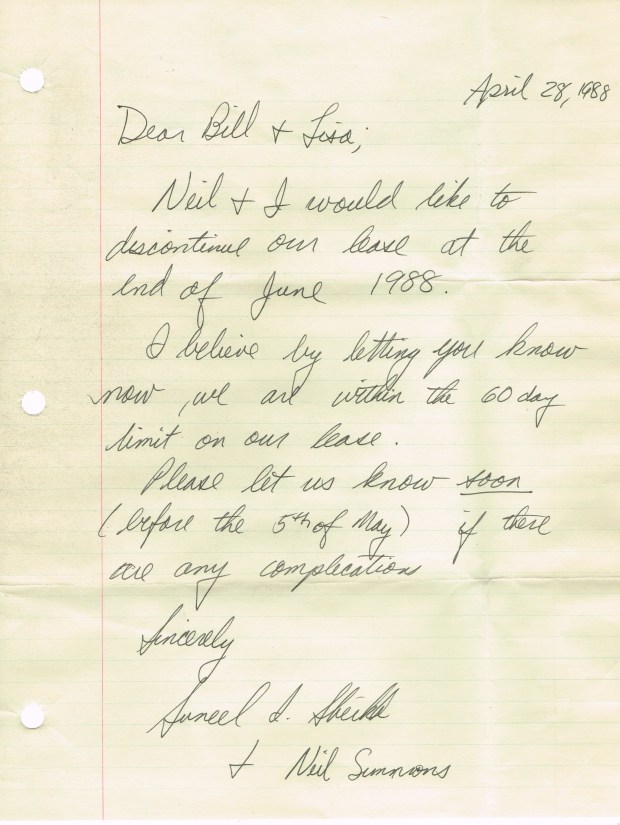 April 28, 1988
Dear Bill & Lisa;
Neil & I would like to
discontinue our lease at the
end of June 1988.
I believe by letting you know
now, we are within the 60 day
limit on our lease.
Please let us know soon
(before the 5th of May) if there
are any complications
Sincerely
Suneel I. Sheikh
& Neil Simmons